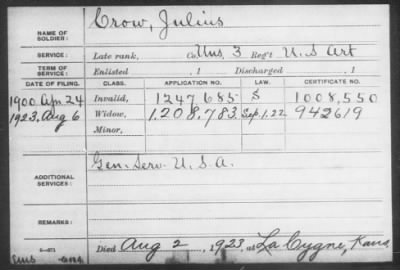 NAME OF SOLDIER: Crow, Julius
SERVICE: Late rank, Co Uns, 3 Reg't U.S Art
TERM OF SERVICE: Enlisted , 1 Discharged , 1
DATE OF FILING. CLASS. APPLICATION NO. LAW. CERTIFICATE NO.
1900 Apr. 24 Invalid, 1247685 S 1008,550
1923, Aug 6 Widow, 1.208,783. Sep.1.22 942619
Minor,
ADDITIONAL SERVICES: Gen. Serv. U.S.A.
REMARKS:
Died Aug 2, 1923, at La Cygne, Kans